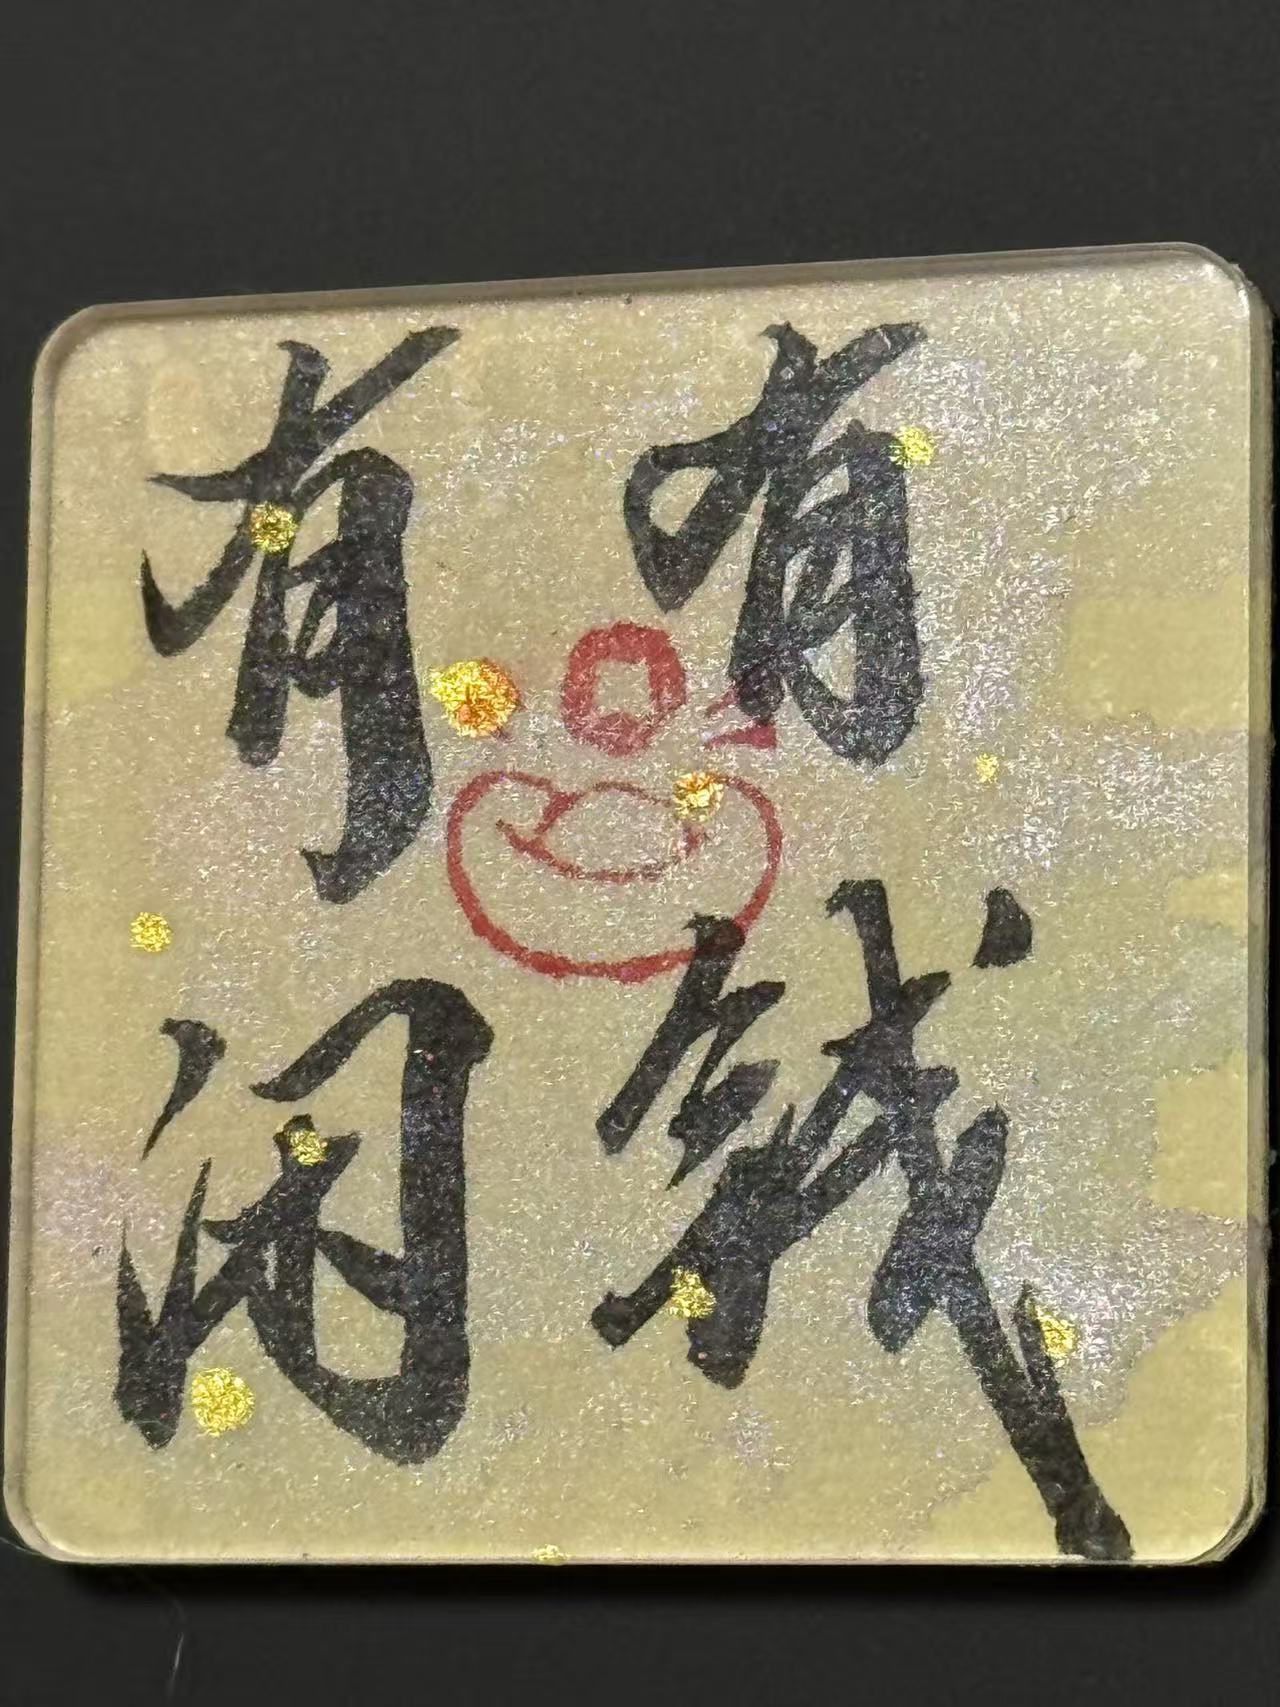 有钱
有闲